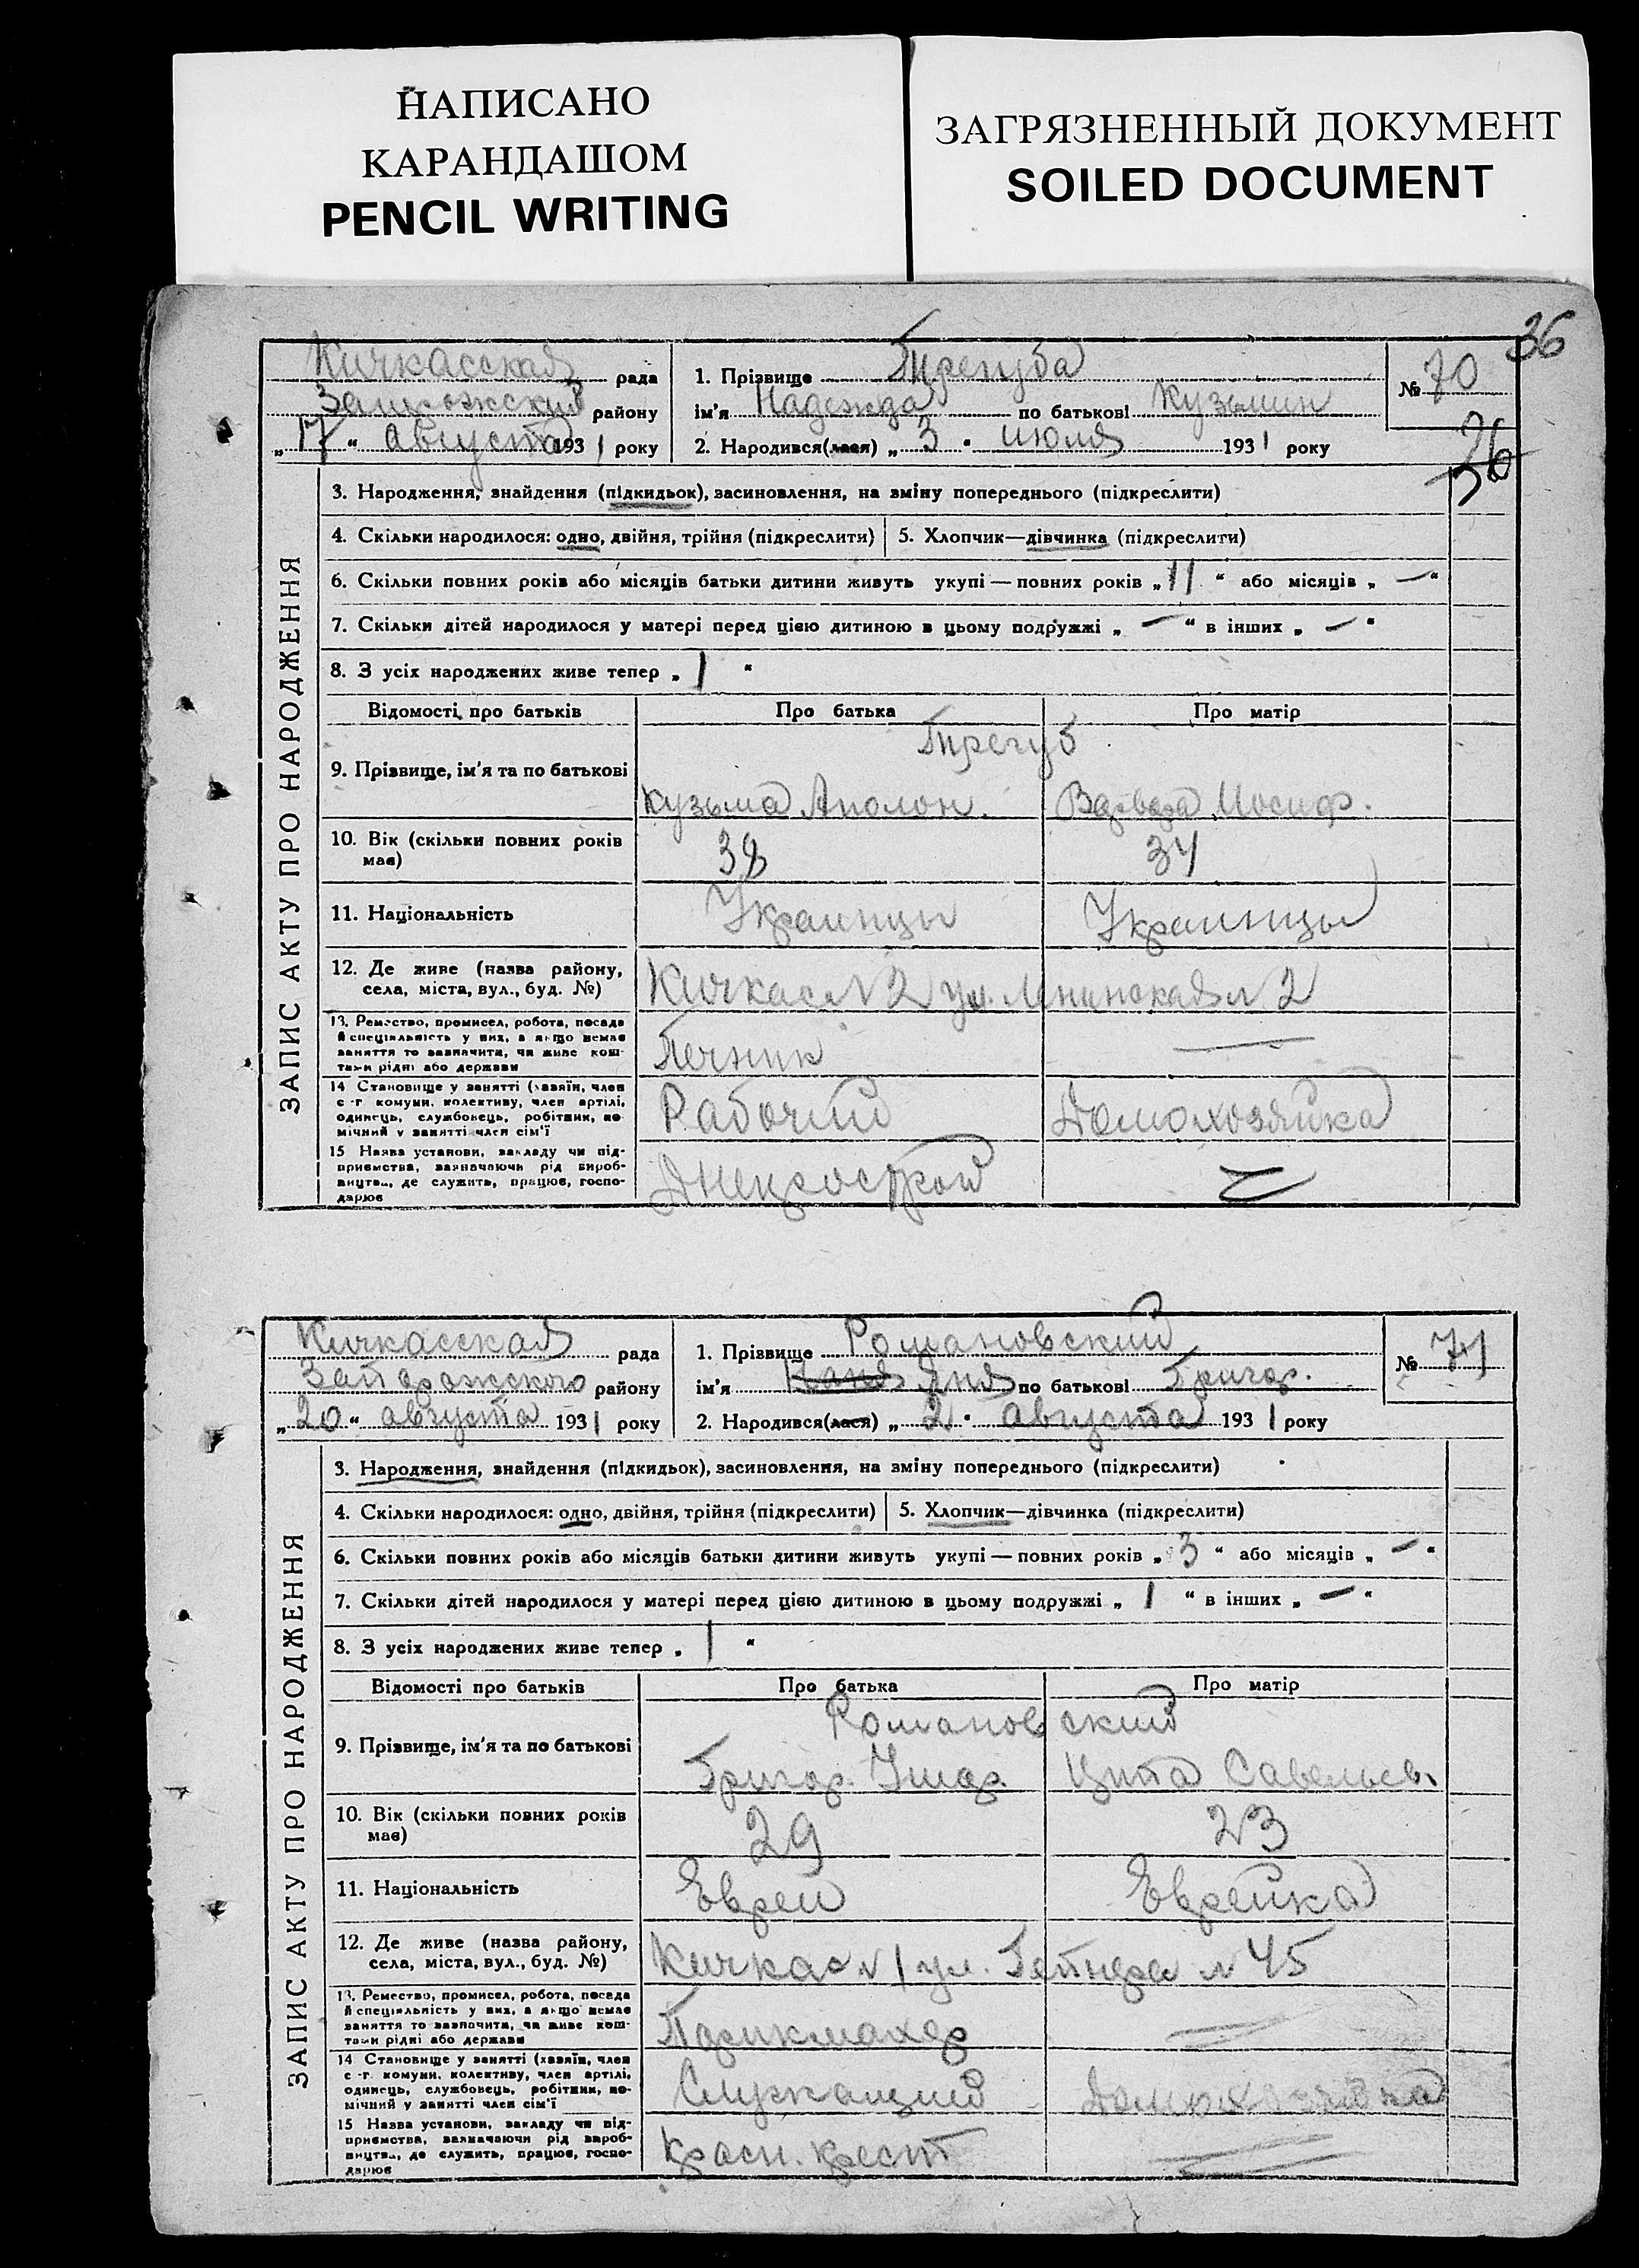 НАПИСАНО
КАРАНДАШОМ
PENCIL WRITING
ЗАГРЯЗНЕННЫЙ ДОКУМЕНТ
SOILED DOCUMENT
36
Кичкасская рада
Запорожский району
„17“ августа 1931 року
1. Прізвище Трегуба
ім'я Надежда по батькові Кузьмин
2. Народився(лася) „3“ июля 1931 року
№ 70
36
ЗАПИС АКТУ ПРО НАРОДЖЕННЯ
3. Народження, знайдення (підкидьок), засиновлення, на зміну попереднього (підкреслити)
4. Скільки народилося: одно, двійня, трійня (підкреслити) 5. Хлопчик—дівчинка (підкреслити)
6. Скільки повних років або місяців батьки дитини живуть укупі — повних років „11“ або місяців „—“
7. Скільки дітей народилося у матері перед цією дитиною в цьому подружжі „—“ в інших „—“
8. З усіх народжених живе тепер „1“
Відомості про батьків Про батька Про матір
Трегуб
9. Прізвище, ім'я та по батькові Кузьма Аполон. Варвара Иосиф.
10. Вік (скільки повних років має) 38 34
11. Національність Украинцы Украинцы
12. Де живе (назва району, села, міста, вул., буд. №) Кичкас N 2 ул. Ленинская N 2
13. Ремество, промисел, робота, посада
й спеціяльність у них, а якщо немає
заняття то зазначити, чи живе кош-
тами рідні або держави
Печник —
14 Становище у занятті (хазяїн, член
с.-г. комуни, колективу, член артілі,
одинець, службовець, робітник, по-
мічний у занятті член сім'ї
Рабочий Домохозяйка
15 Назва установи, закладу чи під-
приємства, зазначаючи рід вироб-
ництва, де служить, працює, госпо-
дарює
Днепрострой
Кичкасская рада
Запорожского району
„20“ августа 1931 року
1. Прізвище Романовский
ім'я Яня по батькові Григор.
2. Народився(лася) „2“ августа 1931 року
№ 71
ЗАПИС АКТУ ПРО НАРОДЖЕННЯ
3. Народження, знайдення (підкидьок), засиновлення, на зміну попереднього (підкреслити)
4. Скільки народилося: одно, двійня, трійня (підкреслити) 5. Хлопчик—дівчинка (підкреслити)
6. Скільки повних років або місяців батьки дитини живуть укупі — повних років „3“ або місяців „—“
7. Скільки дітей народилося у матері перед цією дитиною в цьому подружжі „1“ в інших „—“
8. З усіх народжених живе тепер „1“
Відомості про батьків Про батька Про матір
Романовский
9. Прізвище, ім'я та по батькові Григор. Цита Савельев.
10. Вік (скільки повних років має) 29 23
11. Національність Еврей Еврейка
12. Де живе (назва району, села, міста, вул., буд. №) Кичкас N 1 ул. N 45
13. Ремество, промисел, робота, посада
й спеціяльність у них, а якщо немає
заняття то зазначити, чи живе кош-
тами рідні або держави
Парикмахер
14 Становище у занятті (хазяїн, член
с.-г. комуни, колективу, член артілі,
одинець, службовець, робітник, по-
мічний у занятті член сім'ї
Служащий Домохозяйка
15 Назва установи, закладу чи під-
приємства, зазначаючи рід вироб-
ництва, де служить, працює, госпо-
дарює
Красн. крест